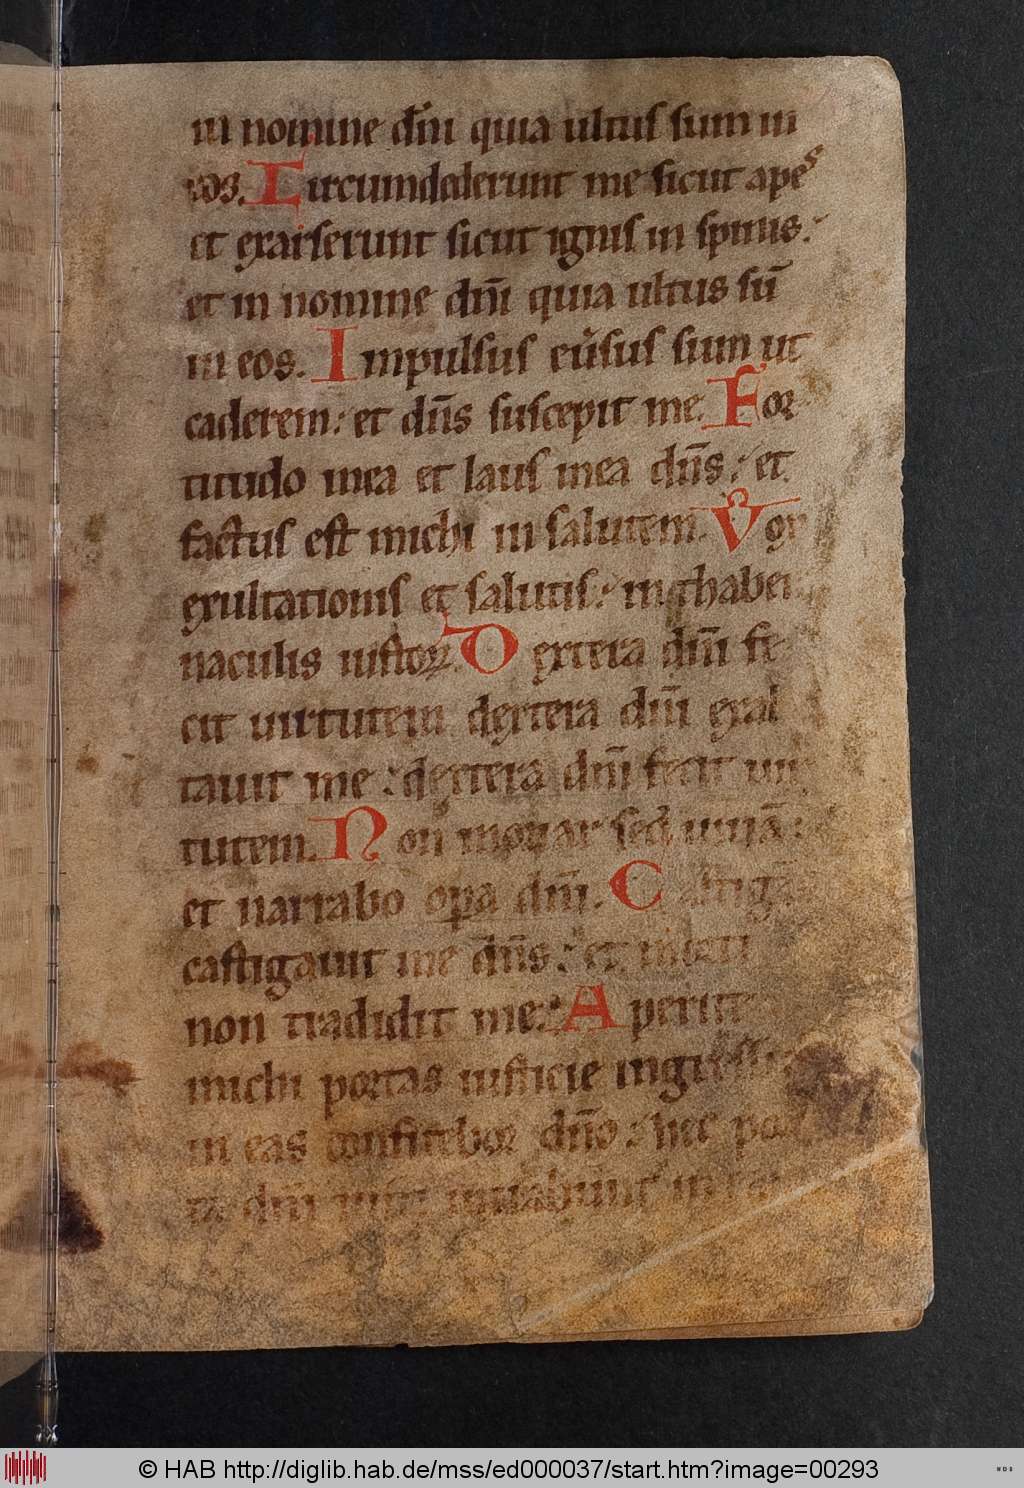 in nomine dn̄i quia ultus sum in
eos. Circumdederunt me sicut apes
et exarserunt sicut ignis in spinis:
et in nomine dn̄i quia ultus sū
in eos. Impulsus eūsus sum ut
caderem: et dn̄s suscepit me. For
titudo mea et laus mea dn̄s: et
factus est michi in salutem. Vox
exultationis et salutis: in thaber
naculis iustoꝝ. Dextera dn̄i fe
cit virtutem dextera dn̄i exal
tauit me: dextera dn̄i fecit uir
tutem. Non moriar sed uiuā:
et narrabo opa dn̄i. Castigās
castigauit me dn̄s: et morti
non tradidit me: Aperite
michi portas iusticie ingressus
in eas confitebor dn̄o: hec por
ta dn̄i iusti intrabunt in
© HAB http://diglib.hab.de/mss/ed000037/start.htm?image=00293